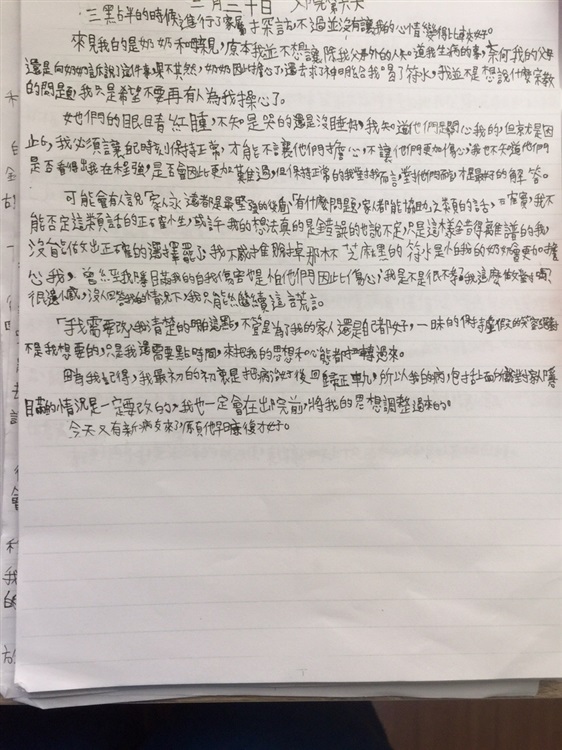 二月二十日 入院第六天
三點半的時候進行了家屬探訪,不過並沒有讓我的心情變得比較好。
來見我的是奶奶和，原本我並不想讓除我父母外的人知道我生病的事,奈何我的父母
還是向奶奶訴說了這件事,果不其然,奶奶因此擔心了還去求神明給我喝了符水,我並不是想說什麼宗教
的問題,我只是希望不要再有人為我操心了。
她們的眼睛紅腫,不知是哭的還是沒睡好,我知道他們是關心我的,但常也是因
此的,我必須讓自己時刻保持正常,才能不讓他們擔心,不讓他們更加傷心,我也不知道他們
是否看得出我在逞強,是否會因此更加難過,但保持正常的我對我而言,對他們而言才是最好的解答。
可能會有人說「家人永遠都是最堅強的後盾」「有什麼問題,家人都能協助」之類的話,確實,我不
能否定這類話的正確性,或許我的想法真的是錯誤的也說不定,只是這樣
沒有能做出正確的選擇罷了,我不敢推脫掉那杯芝麻黑的符水是怕我的奶奶會更加擔
心我,曾經我隱瞞我的自我傷害也是怕他們因此傷心,我是不是很不孝?我這麼做對嗎?
很遺憾,沒人回答我的情況下,我只能繼續這謊言。
「我需要改」我清楚的明白這點,不管是為了我的家人還是自己都好,一昧的保持虛假的笑容
不是我想要的,只是我還需要點時間,來把我的思想和心態都扭轉過來。
因為我記得,我最初的初衷是把病治好後回歸正軌,所以我的病,包括
瞞的情況是一定要改的,我也一定會在出院前,將我的思想調整過來的。
今天又有新病友來了,願他早日康復才好。